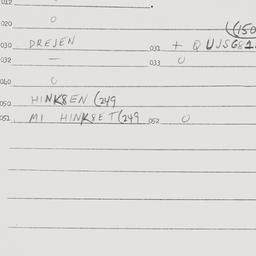 012
020 0 ((150
030 DREJEN 031 + QUJSG81
032 - 033 0
040 0
050 HINK8EN (249
051 MI HINK8ET(249 052 0